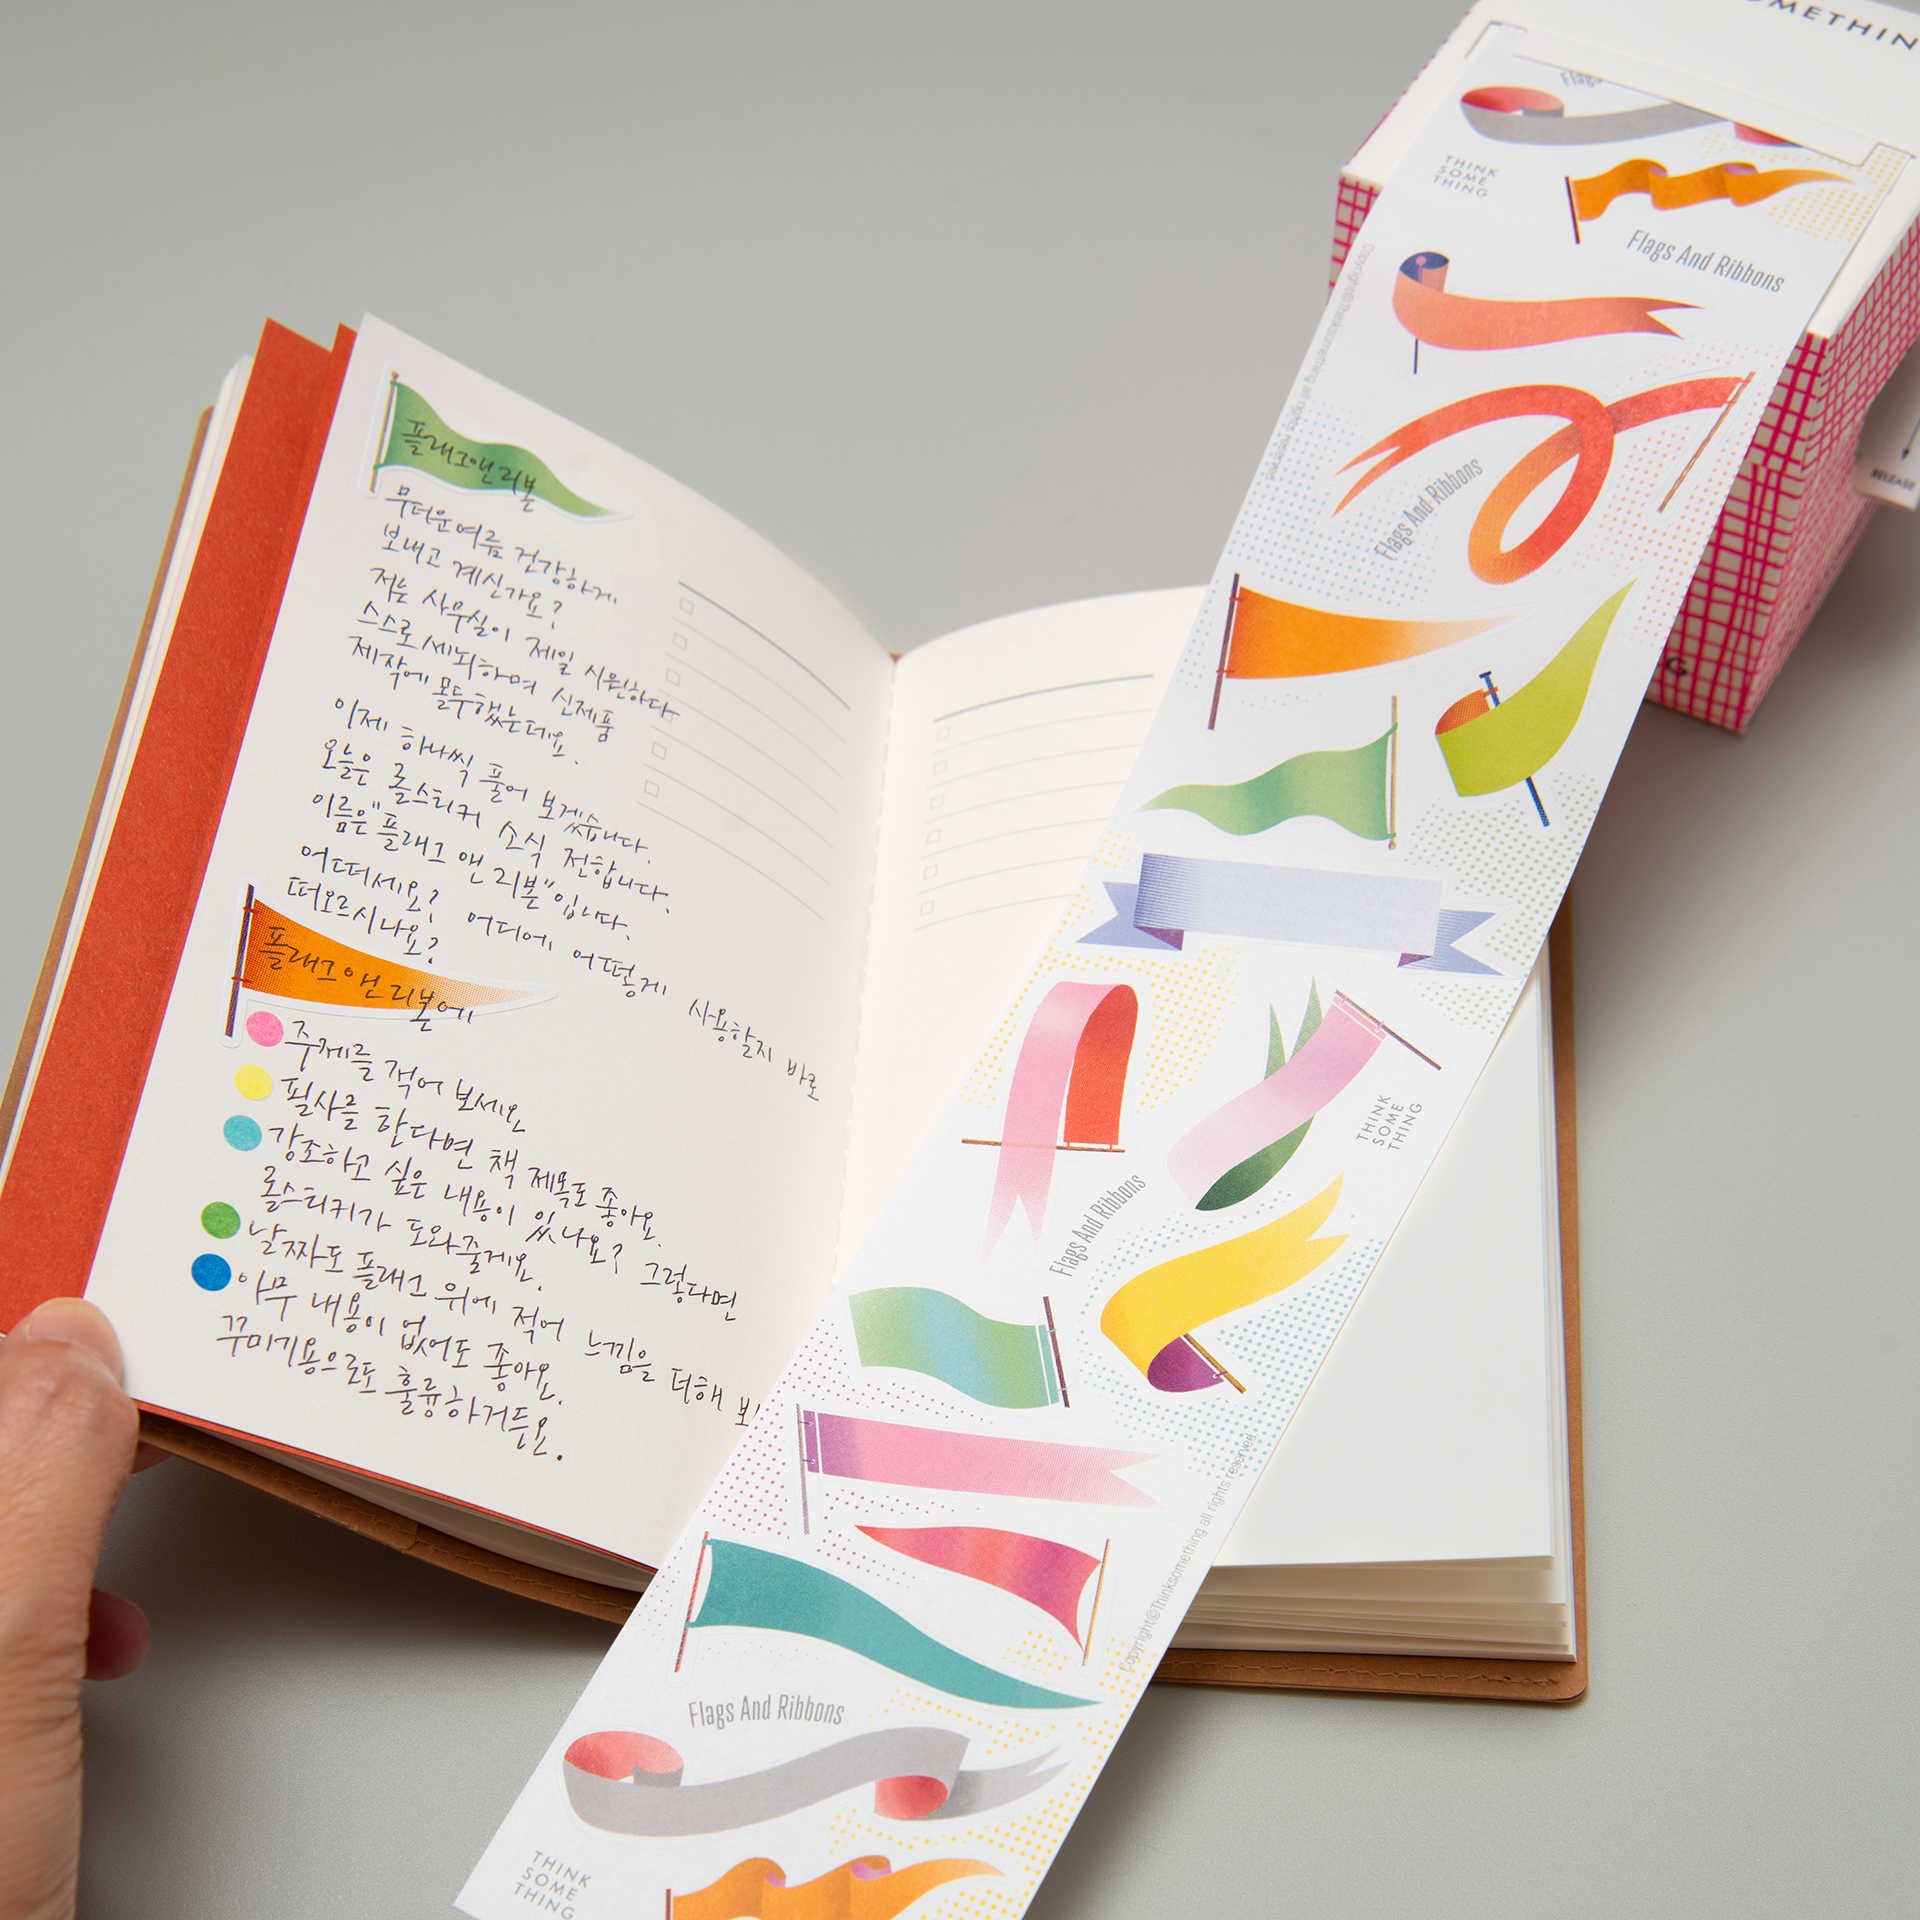 플래그앤리본
무더운 여름 건강하게
보내고 계신가요?
저는 사무실이 제일 시원하다
스스로 세뇌하며 신제품
제작에 몰두했는데요.
이제 하나씩 풀어 보겠습니다.
오늘은 롤스티커 소식 전합니다.
이름은 "플래그 앤 리본" 입니다.
어떠세요? 어디에 어떻게 사용할지 바로
떠오르시나요?
플래그앤리본에
주제를 적어 보세요
필사를 한다면 책 제목도 좋아요.
강조하고 싶은 내용이 있나요? 그렇다면
롤스티커가 도와줄게요.
날짜도 플래그 위에 적어 느낌을 더해 보
아무 내용이 없어도 좋아요.
꾸미기용으로도 훌륭하거든요.
OMETHIN
Flags
THINK
SOME
THING
Flags And Ribbons
Copyright©Thinksomething all rights reserved.
RELEASE
Flags And Ribbons
G
THINK
SOME
THING
Flags And Ribbons
Copyright©Thinksomething all rights reserved.
Flags And Ribbons
THINK
SOME
THING